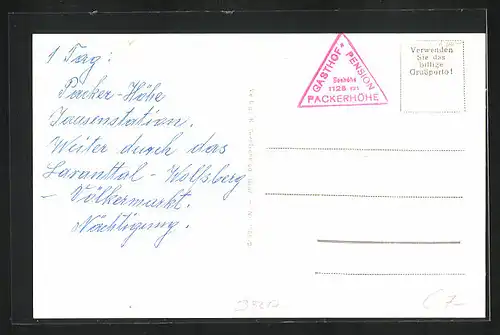 1 Tag:
Packer-Höhe
Jausenstation.
Weiter durch das
Lavanttal - Wolfsberg
- Völkermarkt.
Nächtigung.
GASTHOF * PENSION
Seehöhe
1128 m
PACKERHÖHE
Verwenden
Sie das
billige
Grußporto!